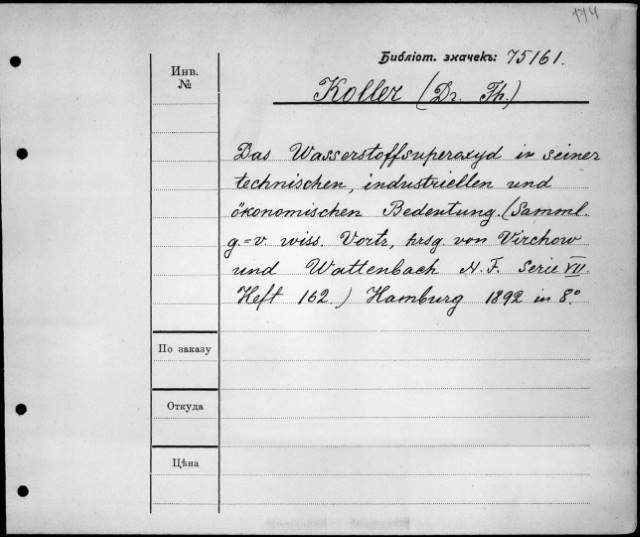 174
Библіот. значекъ: 75161.
Инв.
№
Koller (Dr. Th.)
Das Wasserstoffsuperoxyd in seiner
technischen, industriellen und
ökonomischen Bedeutung. (Samml.
g.=v. wiss. Vortr., hrsg. von Virchow
und Wattenbach N. F. Serie VII.
Heft 162.) Hamburg 1892 in 8°
По заказу
Откуда
Цѣна